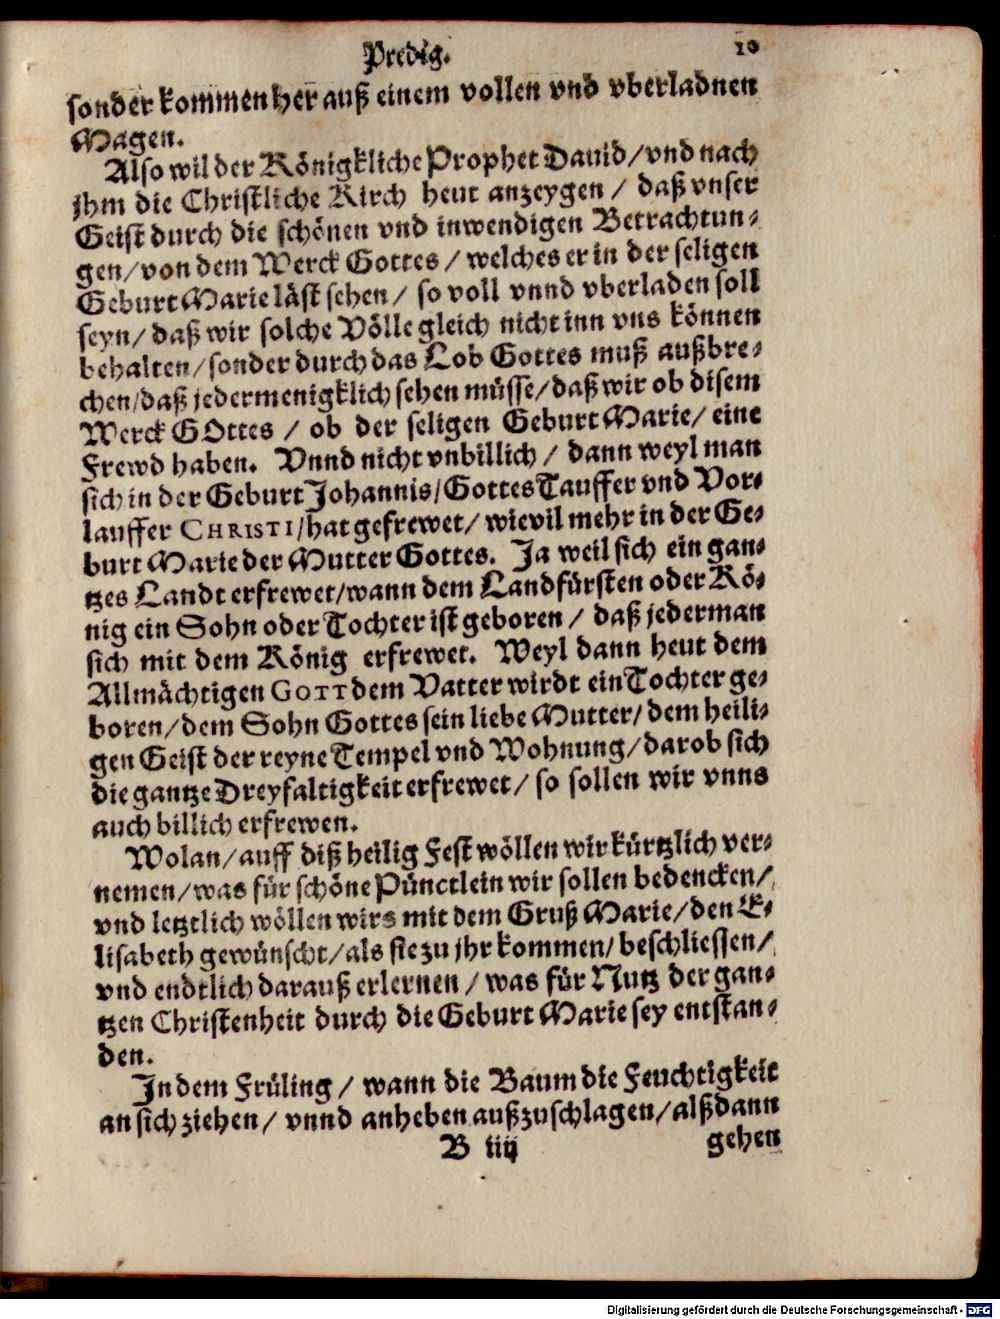 Predig. 10
sonder kommen her auß einem vollen vnd vberladnen
Magen.
Also wil der Königkliche Prophet Dauid/vnd nach
jhm die Christliche Kirch heut anzeygen / daß vnser
Geist durch die schönen vnd inwendigen Betrachtun-
gen/von dem Werck Gottes / welches er in der seligen
Geburt Marie läst sehen / so voll vnnd vberladen soll
seyn/ daß wir solche Völle gleich nicht inn vns können
behalten/sonder durch das Lob Gottes muß außbre-
chen/daß jedermenigklich sehen müsse/daß wir ob disem
Werck GOttes / ob der seligen Geburt Marie/ eine
Frewd haben. Vnnd nicht vnbillich / dann weyl man
sich in der Geburt Johannis/Gottes Tauffer vnd Vor-
lauffer CHRISTI/hat gefrewet/ wievil mehr in der Ge-
burt Marie der Mutter Gottes. Ja weil sich ein gan-
tzes Landt erfrewet/wann dem Landfürsten oder Kö-
nig ein Sohn oder Tochter ist geboren / daß jederman
sich mit dem König erfrewet. Weyl dann heut dem
Allmächtigen GOTT dem Vatter wirdt ein Tochter ge-
boren/dem Sohn Gottes sein liebe Mutter/dem heili-
gen Geist der reyne Tempel vnd Wohnung/darob sich
die gantze Dreyfaltigkeit erfrewet/ so sollen wir vnns
auch billich erfrewen.
Wolan/auff diß heilig Fest wöllen wir kürtzlich ver-
nemen/was für schöne Pünctlein wir sollen bedencken/
vnd letztlich wöllen wirs mit dem Gruß Marie/den E-
lisabeth gewünscht/als sie zu jhr kommen/beschliessen/
vnd endtlich darauß erlernen / was für Nutz der gan-
tzen Christenheit durch die Geburt Marie sey entstan-
den.
In dem Früling / wann die Baum die Feuchtigkeit
an sich ziehen/ vnnd anheben außzuschlagen/alßdann
B iiij gehen
Digitalisierung gefördert durch die Deutsche Forschungsgemeinschaft - DFG